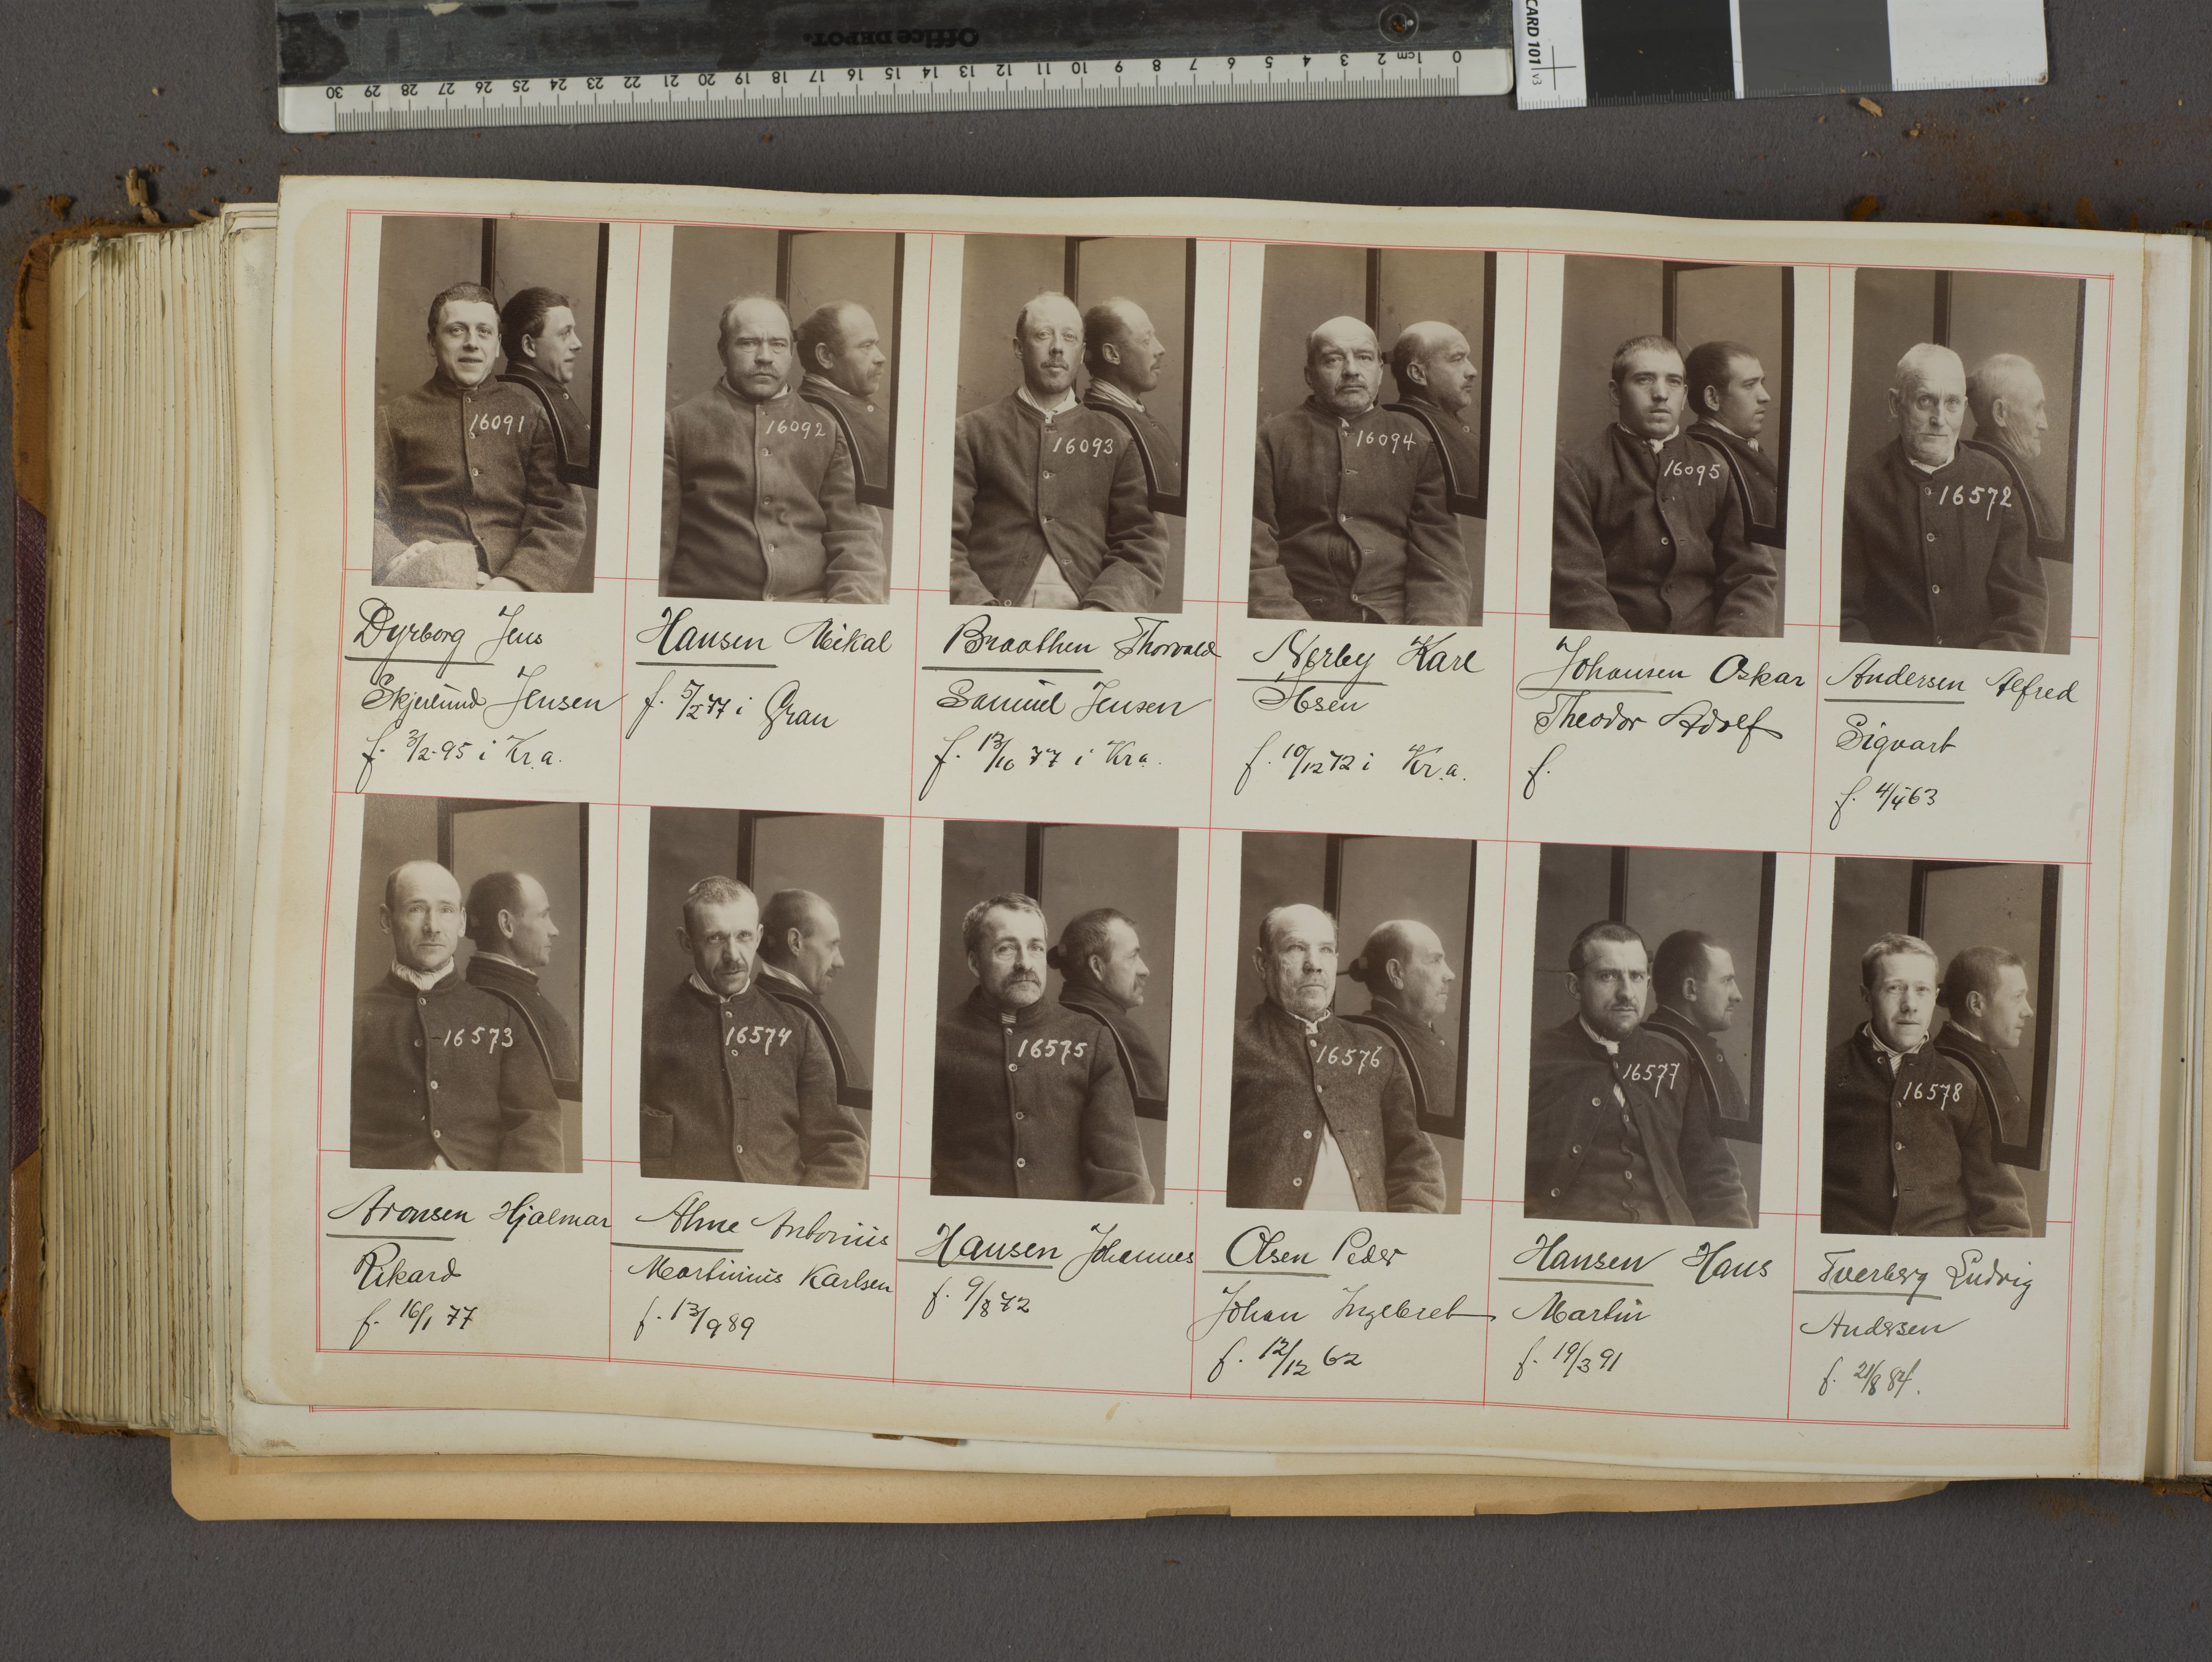 Office DEPOT.
0 1cm 2 3 4 5 6 7 8 9 10 11 12 13 14 15 16 17 18 19 20 21 22 23 24 25 26 27 28 29 30
CARD 101 v3
16091
16092
16093
16094
16095
16572
Dyrborg Jens
Skjelund Jensen
f. 3/2-95 i Kr.a.
Hansen Mikal
f. 5/2 77 i Gran
Braathen Thorvald
Samuel Jensen
f. 13/10 77 i Kr.a.
Nerby Karl
Olsen
f. 10/12 72 i Kr.a.
Johansen Oskar
Theodor Adolf
f.
Andersen Alfred
Sigvart
f. 4/4 63
16573
16574
16575
16576
16577
16578
Aronsen Hjalmar
Rikard
f. 16/1 77
Alme Antonius
Martinius Karlsen
f. 13/9 89
Hansen Johannes
f. 9/8 72
Olsen Peder
Johan Ingebret
f. 12/12 62
Hansen Hans
Martin
f. 19/3 91
Tverberg Ludvig
Andersen
f. 21/8 84.